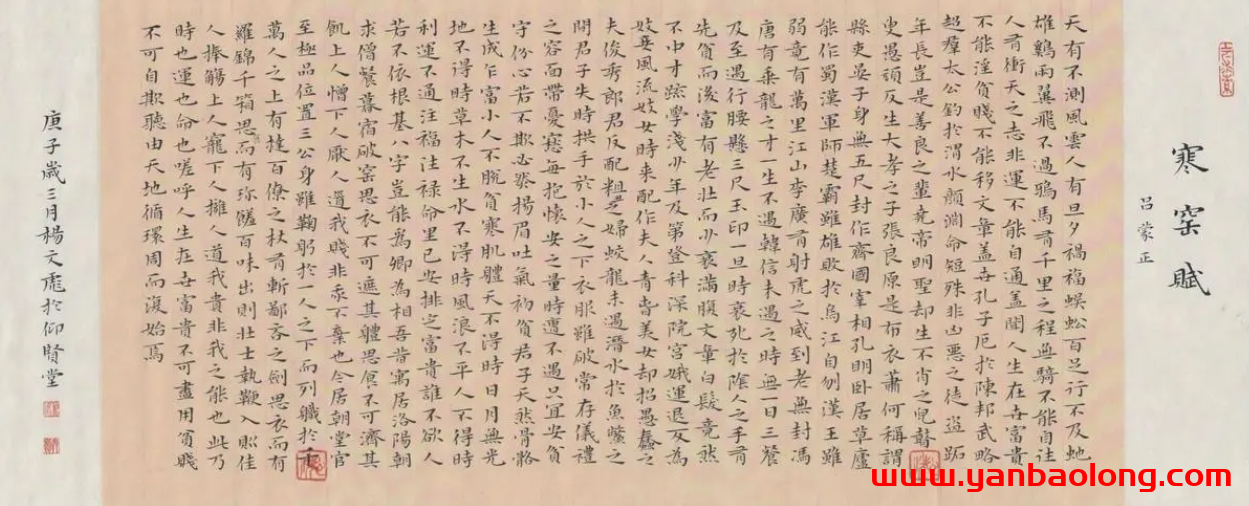 寒窑賦
吕蒙正
天有不測風雲人有旦夕禍福蜈蚣百足行不及虵
雄鷄兩翼飛不過鴉馬有千里之程無騎不能自往
人有衝天之志非運不能自通盖聞人生在世富貴
不能淫貧賤不能移文章盖世孔子厄於陳邦武略
超羣太公釣於渭水顔淵命短殊非凶惡之徒盜跖
年長豈是善良之輩尭帝明聖却生不肖之兒瞽
叟愚頑反生大孝之子張良原是布衣蕭何稱謂
縣吏晏子身無五尺封作齊國宰相孔明卧居草廬
能作蜀漢軍師楚霸雖雄敗於烏江自刎漢王雖
弱竟有萬里江山李廣有射虎之威到老無封馮
唐有乘龍之才一生不遇韓信未遇之時無一日三餐
及至遇行腰懸三尺玉印一旦時衰死於陰人之手有
先貧而後富有老壯而少衰滿腹文章白髮竟然
不中才疏學淺少年及第登科深院宮娥運退反為
妓妾風流妓女時來配作夫人青春美女却招愚蠢之
夫俊秀郎君反配粗醜之婦蛟龍未遇潛水於魚鱉之
間君子失時拱手於小人之下衣服雖破常存儀禮
之容面帶憂愁每抱懷安之量時遭不遇只宜安貧
守份心若不欺必然揚眉吐氣初貧君子天然骨骼
生成乍富小人不脫貧寒肌體天不得時日月無光
地不得時草木不生水不得時風浪不平人不得時
利運不通注福注禄命里已安排定富貴誰不欲人
若不依根基八字豈能爲卿為相吾昔寓居洛陽朝
求僧餐暮宿破窑思衣不可遮其體思食不可濟其
飢上人憎下人厭人道我賤非我不棄也今居朝堂官
至極品位置三公身雖鞠躬於一人之下而列職於千
萬人之上有撻百僚之杖有斬鄙吝之劍思衣而有
羅錦千箱思食而有珍饈百味出則壯士執鞭入則佳
人捧觴上人寵下人擁人道我貴非我之能也此乃
時也運也命也嗟呼人生在世富貴不可盡用貧賤
不可自欺聽由天地循環周而復始焉
庚子歲三月楊文於仰賢堂
www.yanbaolong.com